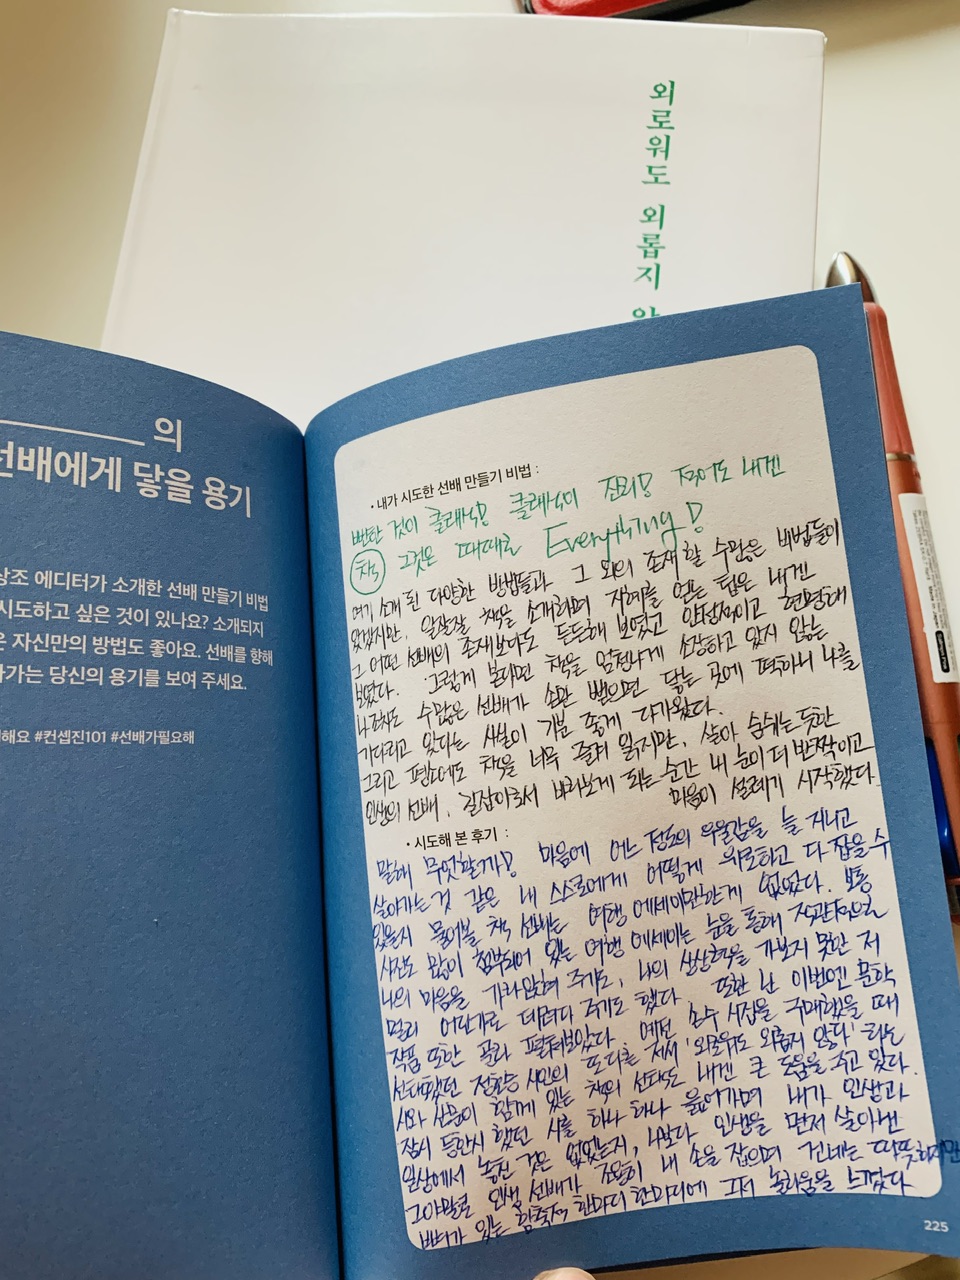 외로워도 외롭지
의
선배에게 닿을 용기
상조 에디터가 소개한 선배 만들기 비법
시도하고 싶은 것이 있나요? 소개되지
은 자신만의 방법도 좋아요. 선배를 향해
가는 당신의 용기를 보여 주세요.
해요 #컨셉진101 #선배가필요해
• 내가 시도한 선배 만들기 비법 :
뻔한 것이 클래식! 클래식이 진리! 적어도 내겐
책 그것은 때때로 Everything!
여기 소개된 다양한 방법들과 그 외의 존재할 수많은 비법들이
있겠지만, 일잘잘 책을 소개하며 지혜를 얻는 팁은 내겐
그 어떤 선배의 존재보다도 든든해 보였고 안정적이고 현명해
보였다. 그렇게 본다면 책을 엄청나게 소장하고 있지 않는
나조차도 수많은 선배가 손만 뻗으면 닿는 곳에 떡하니 나를
기다리고 있다는 사실이 기분 좋게 다가왔다.
그리고 평소에도 책을 너무 즐겨 읽지만, 살아 숨쉬는 듯한
인생의 선배, 길잡이로서 바라보게 되는 순간 내 눈이 더 반짝이고
마음이 설레기 시작했다.
• 시도해 본 후기 :
말해 무엇할까! 마음에 어느 정도의 우울감을 늘 지니고
살아가는 것 같은 내 스스로에게 어떻게 위로하고 다잡을 수
있을지 물어볼 책 선배는 여행 에세이만한게 없었다. 보통
사진도 많이 첨부되어 있는 여행 에세이는 눈을 통해 직관적으로
나의 마음을 가라앉혀 주기도, 나의 상상력을 가보지 못한 저
멀리 어딘가로 데려다 주기도 했다. 또한 난 이번엔 문학
작품 또한 골라 펼쳐보았다. 예전 손수 시집을 구매했을 때
선택했던 정호승 시인의 또다른 저서 '외로워도 외롭지 않다' 라는
시와 산문이 함께 있는 책의 선택도 내겐 큰 도움을 주고 있다.
잠시 등한시 했던 시를 하나 하나 읊어가며 내가 인생과
일상에서 놓친 것은 없었는지, 나보다 인생을 먼저 살아낸
그야말로 인생 선배가 조용히 내 손을 잡으며 건네는 따뜻하지만
뼈가 있는 함축적 한마디 한마디에 그저 놀라움을 느꼈다.
225